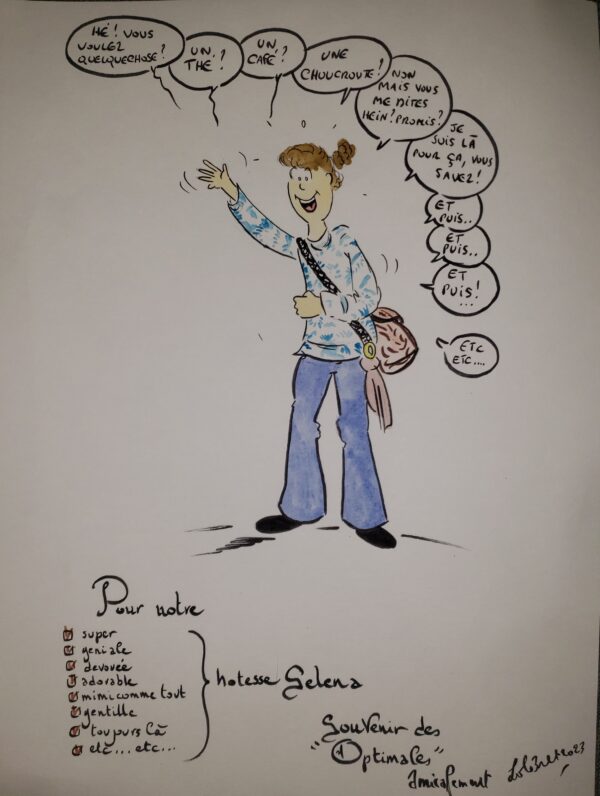 HÉ! VOUS
VOULEZ
QUELQUECHOSE?
UN
THÉ?
UN
CAFÉ?
UNE
CHOUCROUTE!
NON
MAIS VOUS
ME DITES
HEIN? PROMIS?
JE
SUIS LÀ
POUR ÇA, VOUS
SAVEZ!
ET
PUIS..
ET
PUIS..
ET
PUIS!
...
ETC
ETC....
Pour notre
super
geniale
devouée
adorable
mimi comme tout
gentille
toujours là
etc... etc...
hotesse Selena
Souvenir des
"Optimales"
Amicalement
2023